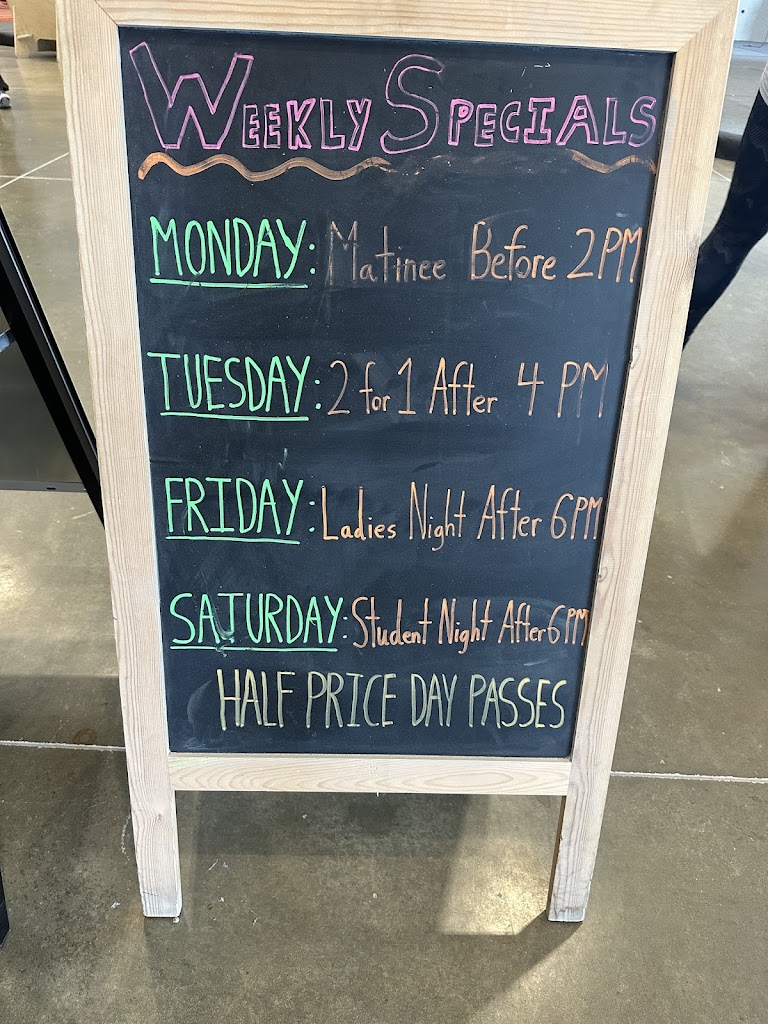 WEEKLY SPECIALS
MONDAY: Matinee Before 2 PM
TUESDAY: 2 for 1 After 4 PM
FRIDAY: Ladies Night After 6PM
SATURDAY: Student Night After 6 PM
HALF PRICE DAY PASSES